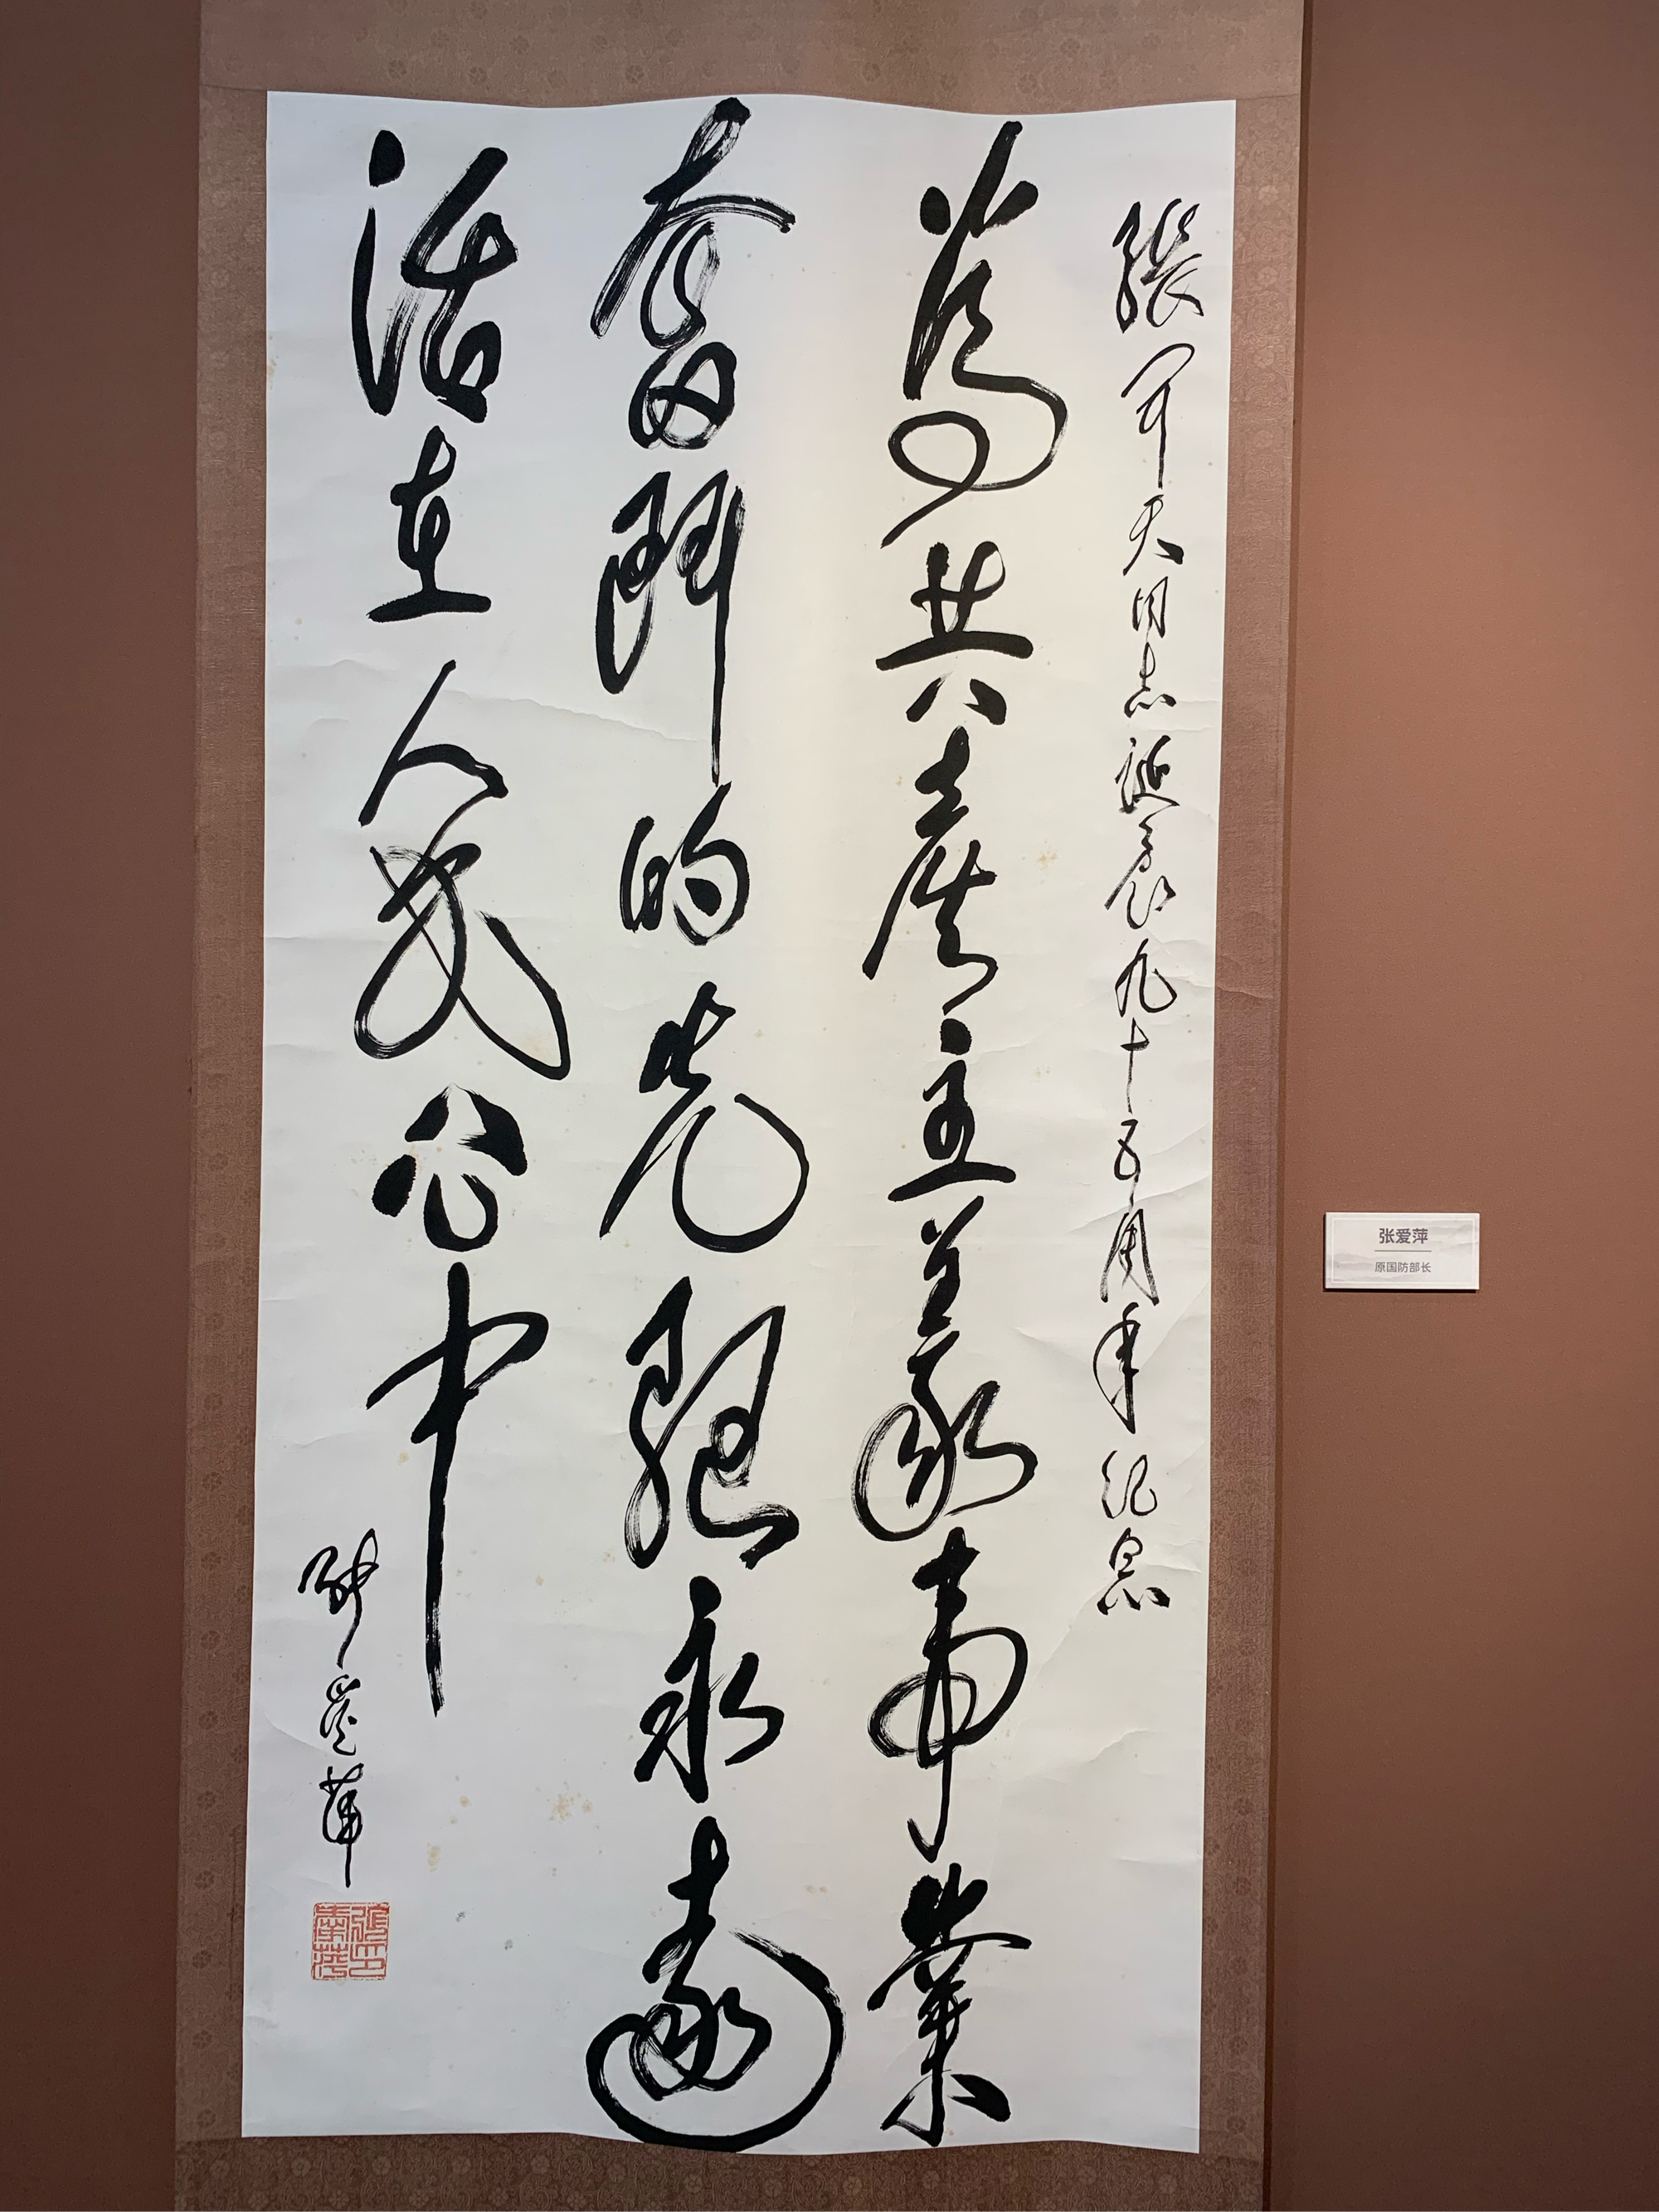 張聞天同志誕辰九十五周年紀念
為共產主義事業
奮鬥的先驅永遠
活在人民心中
張愛萍
張印愛萍
张爱萍
原国防部长